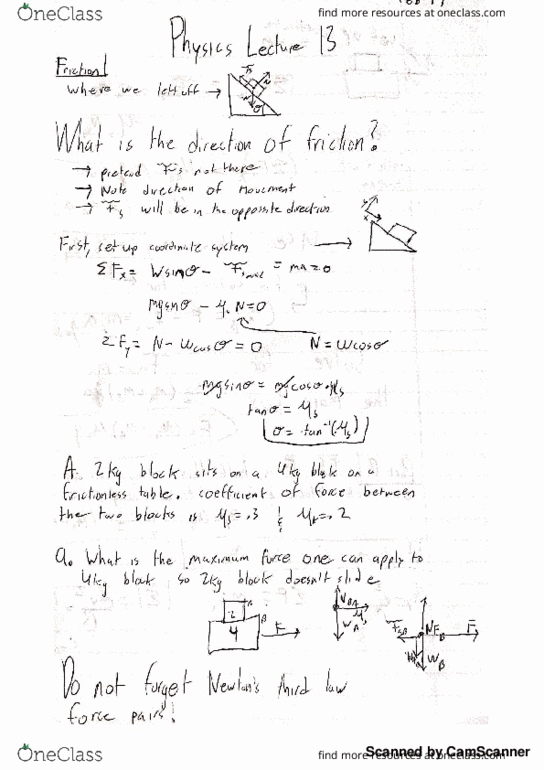 OneClass
find more resources at oneclass.com
Physics Lecture 13
Friction!
where we left off →
What is the direction of friction?
→ pretend Fs not there
→ Note direction of movement
→ Fs will be in the opposite direction
First, set up coordinate system →
ΣFx = Wsinθ - Fsmax = ma = 0
mgsinθ - μsN = 0
ΣFy = N - Wcosθ = 0 N = Wcosθ
mgsinθ = mgcosθ μs
tanθ = μs
θ = tan⁻¹(μs)
A 2kg block sits on a 4kg block on a
frictionless table. coefficient of force between
the two blocks is μs = .3 & μk = .2
a. What is the maximum force one can apply to
4kg block so 2kg block doesn't slide
2 A
4 B F
NBA WA
FSAB NFB F WB
Do not forget Newton's third law
force pairs!
OneClass
find more resources at oneclass.com
Scanned by CamScanner